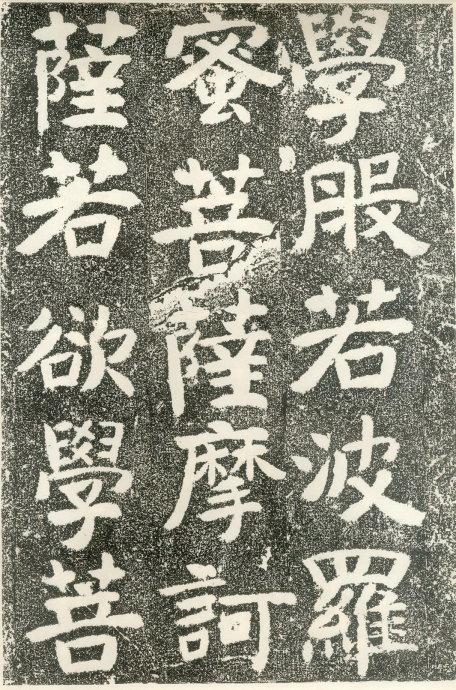 學般若波羅
蜜菩薩摩訶
薩若欲學菩